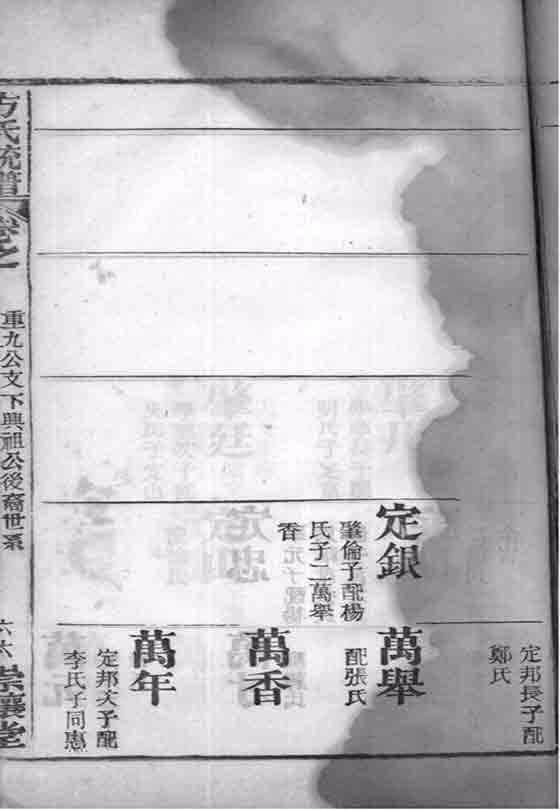 定邦長子配
鄭氏
定銀
肇倫子配楊
氏子二萬舉
香
萬舉
配張氏
萬香
萬年
定邦次子配
李氏子同憲
方氏統譜
卷之
重九公文下興祖公後裔世系
六六
堂